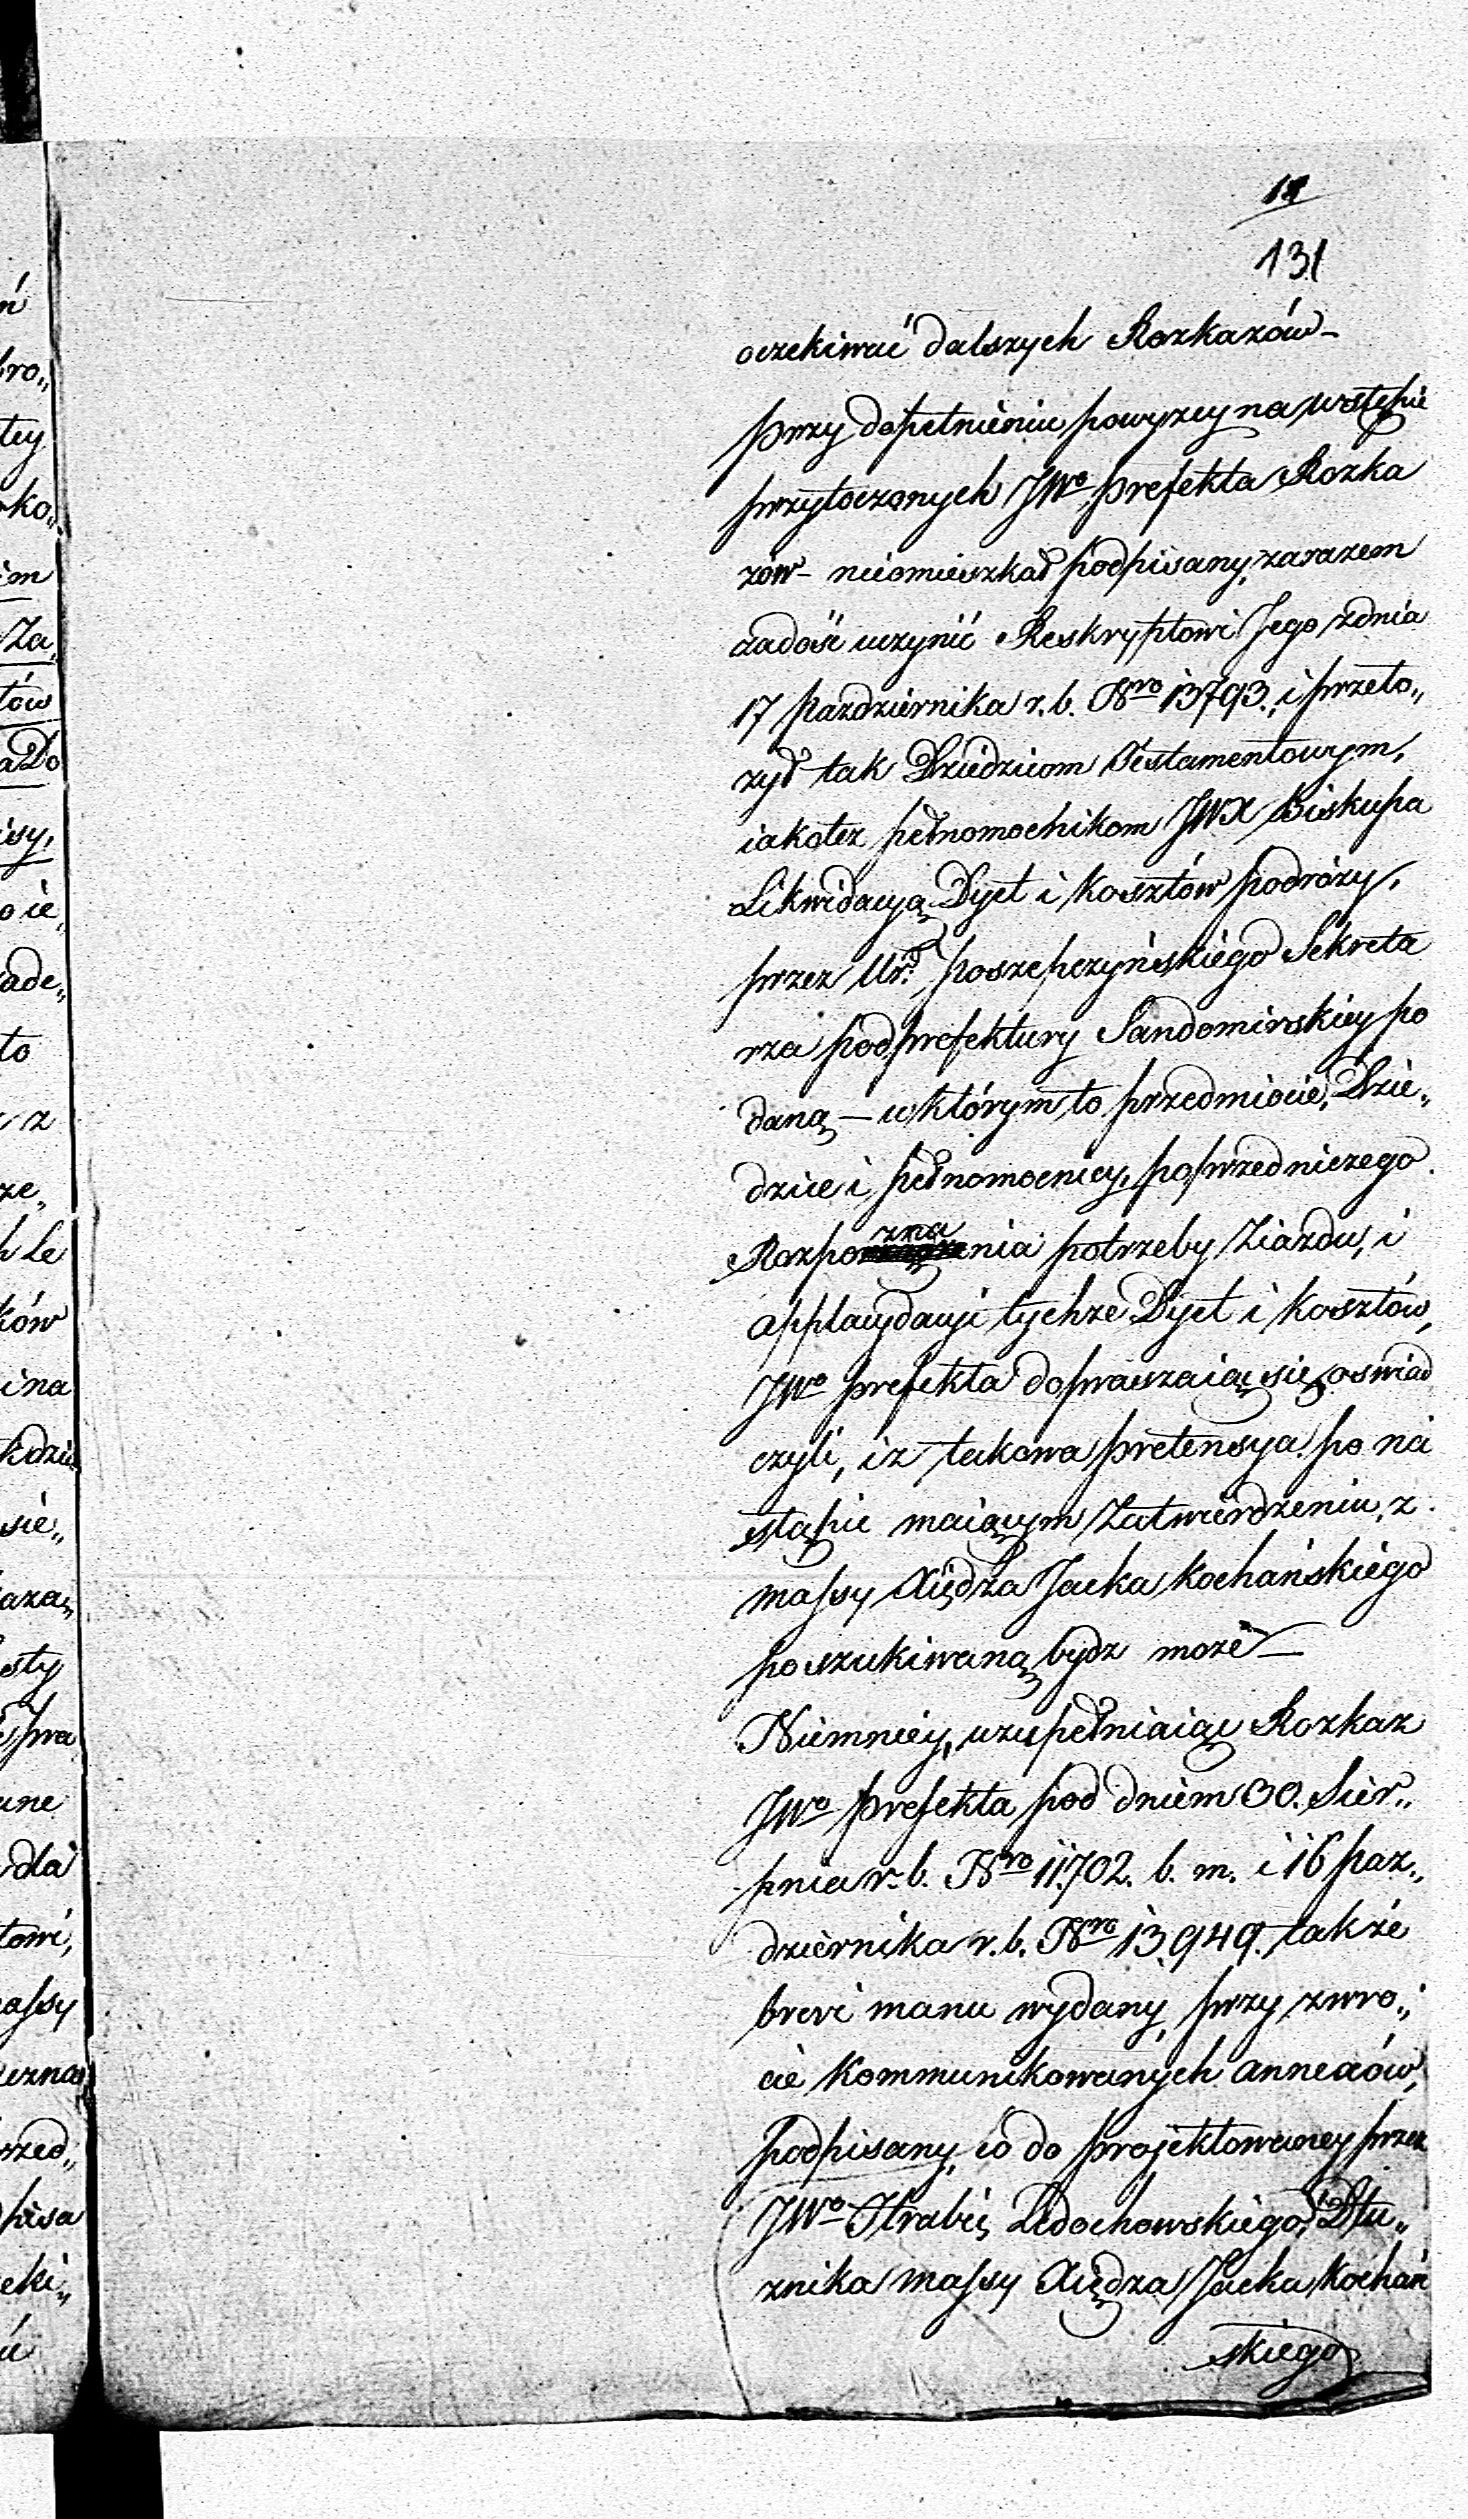 18
131
oczekiwać dalszych Rozkazów –
przy dopełnieniu powyzey na wstępie
przytoczonych JWo prefekta Rozka
zow – nieomieszkał podpisany, zarazem
zadość uczynić Reskryptowi Jego zdnia
17 pazdziernika r. b. Nro 13793. i przeło„
zył tak Dziedzicom Testamentowym,
iakotez pełnomocnikom JWX Biskupa
Likwidacyą Dyet i kosztów podrózy,
przez Ur. Poszepczyńskiego Sekreta
rza podprefektury Sandomirskiey po
daną – w którym to przedmiocie, Dzie„
dzice i pełnomocnicy, poprzedniczego
Rozpoznania potrzeby Ziazdu, i
applacydacyi tychze Dyet i kosztów,
JWo prefekta dopraszaiąc się, oswiad
czyli, iz takowa pretensya po na
stąpić maiącym Zatwierdzeniu, z
massy Xiędza Jacka Kochańskiego
poszukiwaną bydz moze –
Niemniey, uzupełniaiąc Rozkaz
JWo prefekta pod dniem 30. Sier„
pnia r. b. Nro 11.702. b. m. i 16 paz„
dziernika r. b. Nro 13.949. także
brevi manu wydany, przy zwro„
cie kommunikowanych annexów,
podpisany, co do projektowaney przez
JWo Hrabię Ledochowskiego, Dłu„
znika massy Xiędza Jacka Kochań
skiego
ń
bro„
tey
ko„
im
Za„
tów
aDo
isy,
o ie„
ade„
to
z
ze„
h Le
ków
i na
sie„
aza„
sty
pra
une
dla
towi,
assy
uzna
rzed„
pisa
eki„